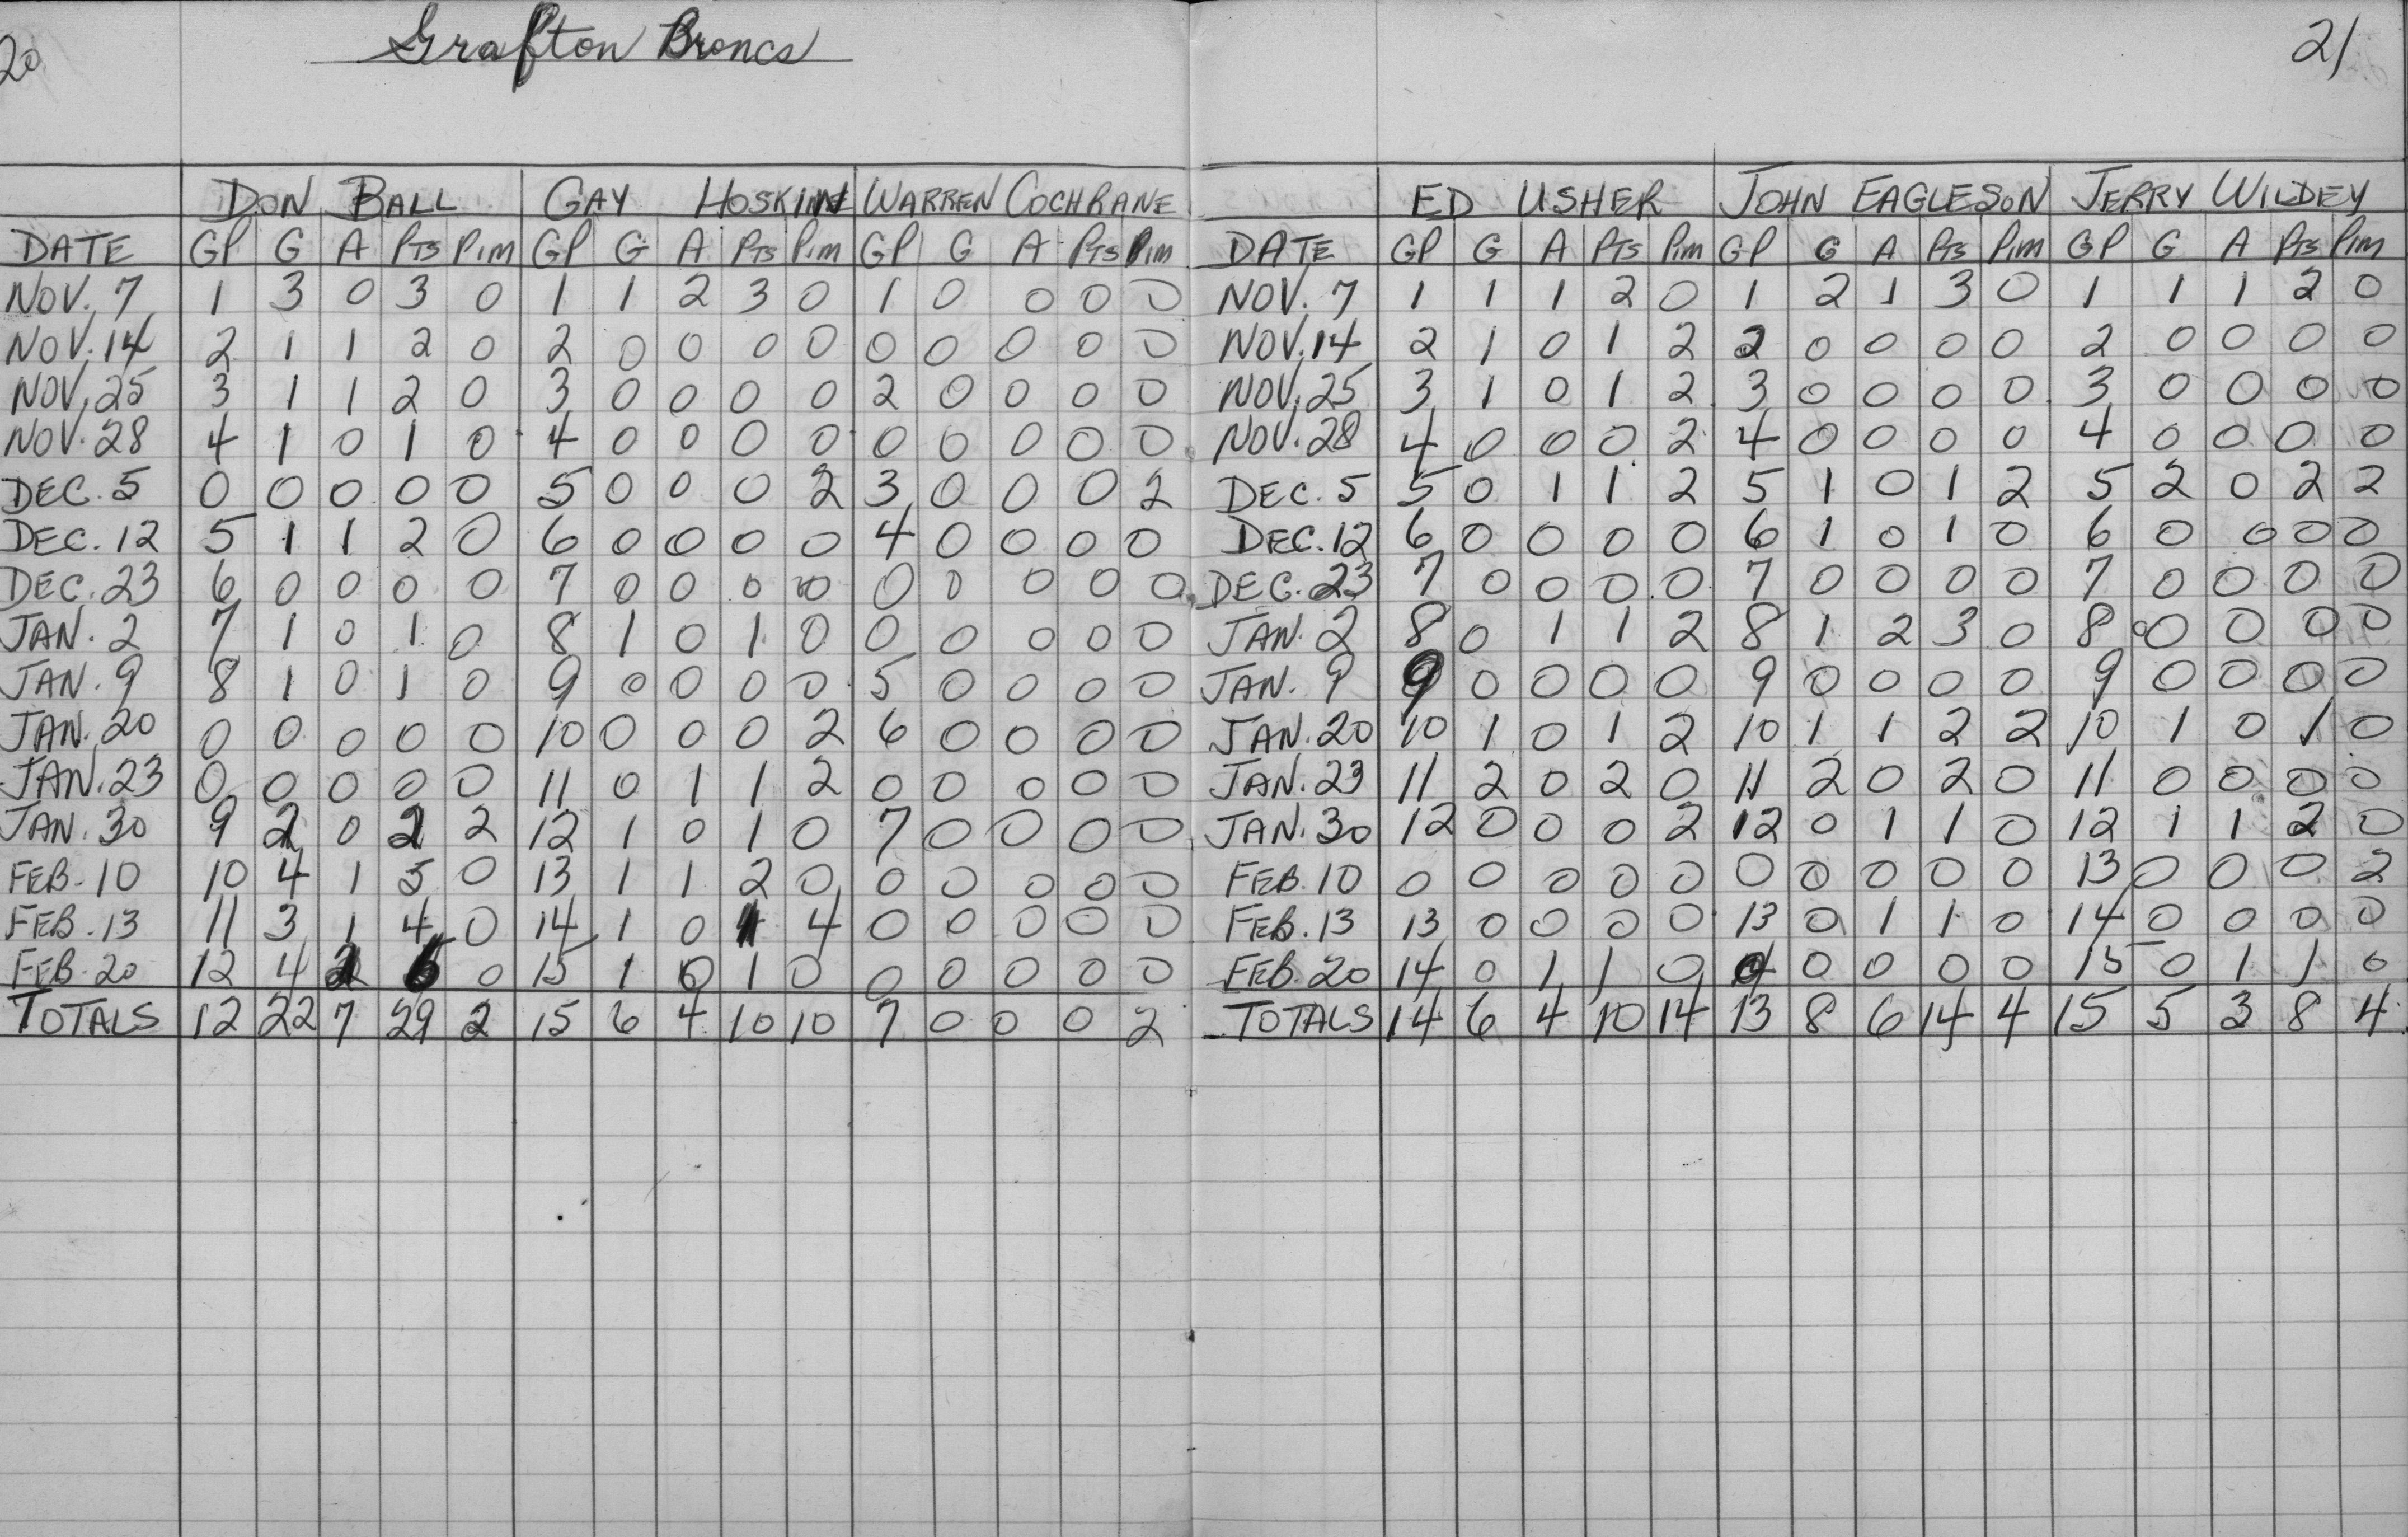 20 Grafton Broncs 21
DON BALL GAY HOSKIN WARREN COCHRANE
DATE GP G A PTS PIM GP G A PTS PIM GP G A PTS PIM
NOV. 7 1 3 0 3 0 1 1 2 3 0 1 0 0 0 0
NOV. 14 2 1 1 2 0 2 0 0 0 0 0 0 0 0 0
NOV. 25 3 1 1 2 0 3 0 0 0 0 2 0 0 0 0
NOV. 28 4 1 0 1 0 4 0 0 0 0 0 0 0 0 0
DEC. 5 0 0 0 0 0 5 0 0 0 2 3 0 0 0 2
DEC. 12 5 1 1 2 0 6 0 0 0 0 4 0 0 0 0
DEC. 23 6 0 0 0 0 7 0 0 0 0 0 0 0 0 0
JAN. 2 7 1 0 1 0 8 1 0 1 0 0 0 0 0 0
JAN. 9 8 1 0 1 0 9 0 0 0 0 5 0 0 0 0
JAN. 20 0 0 0 0 0 10 0 0 0 2 6 0 0 0 0
JAN. 23 0 0 0 0 0 11 0 1 1 2 0 0 0 0 0
JAN. 30 9 2 0 2 2 12 1 0 1 0 7 0 0 0 0
FEB. 10 10 4 1 5 0 13 1 1 2 0 0 0 0 0 0
FEB. 13 11 3 1 4 0 14 1 0 1 4 0 0 0 0 0
FEB. 20 12 4 2 6 0 15 1 0 1 0 0 0 0 0 0
TOTALS 12 22 7 29 2 15 6 4 10 10 7 0 0 0 2
ED USHER JOHN EAGLESON JERRY WILDEY
DATE GP G A PTS PIM GP G A PTS PIM GP G A PTS PIM
NOV. 7 1 1 1 2 0 1 2 1 3 0 1 1 1 2 0
NOV. 14 2 1 0 1 2 2 0 0 0 0 2 0 0 0 0
NOV. 25 3 1 0 1 2 3 0 0 0 0 3 0 0 0 0
NOV. 28 4 0 0 0 2 4 0 0 0 0 4 0 0 0 0
DEC. 5 5 0 1 1 2 5 1 0 1 2 5 2 0 2 2
DEC. 12 6 0 0 0 0 6 1 0 1 0 6 0 0 0 0
DEC. 23 7 0 0 0 0 7 0 0 0 0 7 0 0 0 0
JAN. 2 8 0 1 1 2 8 1 2 3 0 8 0 0 0 0
JAN. 9 9 0 0 0 0 9 0 0 0 0 9 0 0 0 0
JAN. 20 10 1 0 1 2 10 1 1 2 2 10 1 0 1 0
JAN. 23 11 2 0 2 0 11 2 0 2 0 11 0 0 0 0
JAN. 30 12 0 0 0 2 12 0 1 1 0 12 1 1 2 0
FEB. 10 0 0 0 0 0 0 0 0 0 0 13 0 0 0 2
FEB. 13 13 0 0 0 0 13 0 1 1 0 14 0 0 0 0
FEB. 20 14 0 1 1 0 0 0 0 0 0 15 0 1 1 0
TOTALS 14 6 4 10 14 13 8 6 14 4 15 5 3 8 4